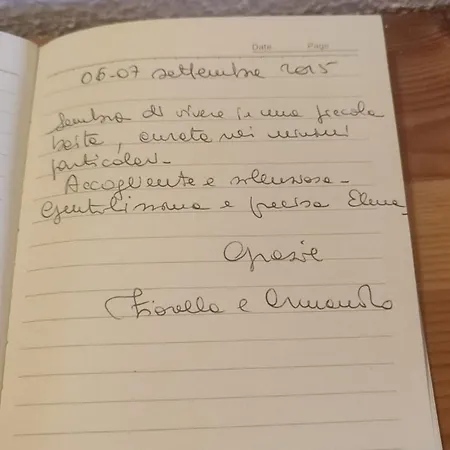 Date Page
06-07 settembre 2025
Sembra di vivere in una piccola
baita, curata nei minimi
particolari.
Accogliente e silenziosa.
Gentilissima e precisa Elena.
Grazie
Fiorella e Armando